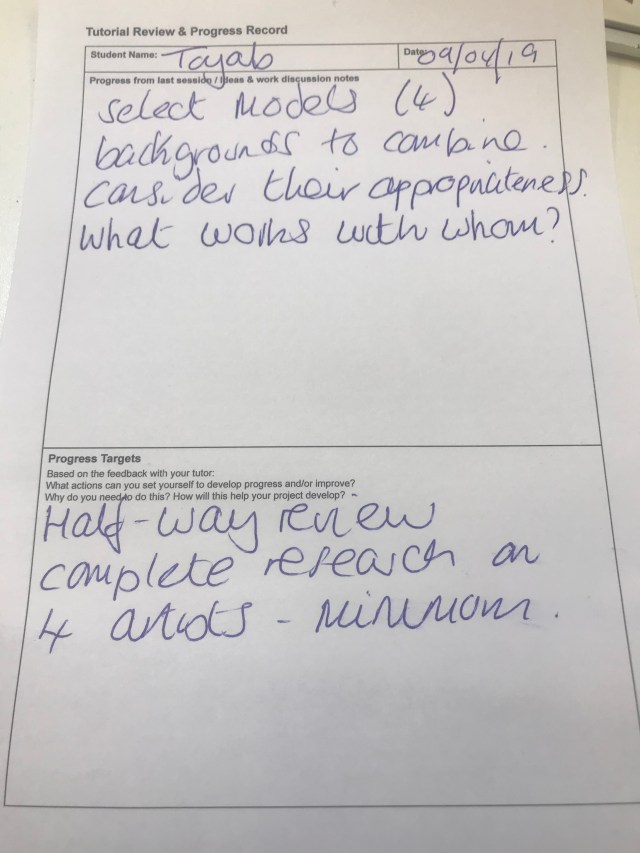 Tutorial Review & Progress Record
Student Name: Tayab Date: 09/04/19
Progress from last session / Ideas & work discussion notes
select Models (4)
backgrounds to combine.
consider their appropriateness.
What works with whom?
Progress Targets
Based on the feedback with your tutor:
What actions can you set yourself to develop progress and/or improve?
Why do you need to do this? How will this help your project develop? -
Half-way review
complete research on
4 artists - Minimum.